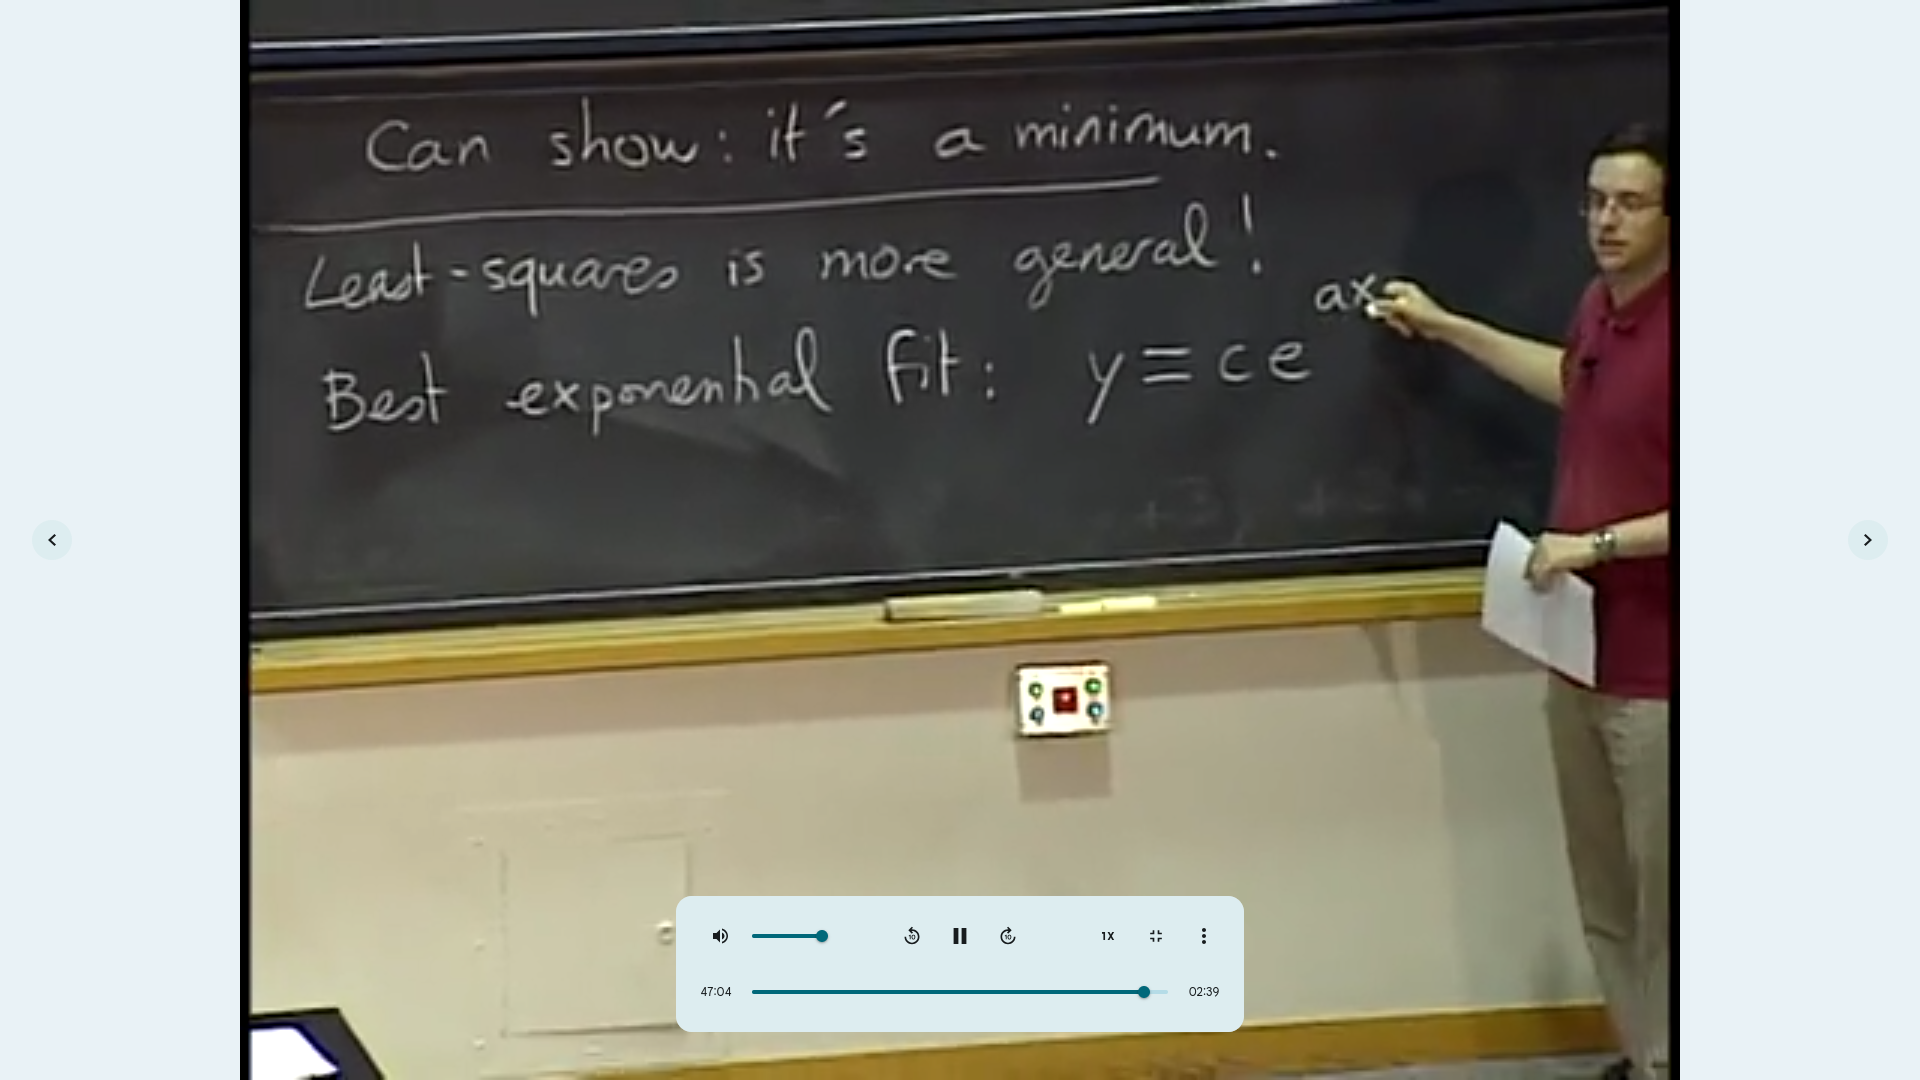 Can show: it's a minimum.
Least-squares is more general!
Best exponential fit: y = c e^{ax}
1X
47:04
02:39